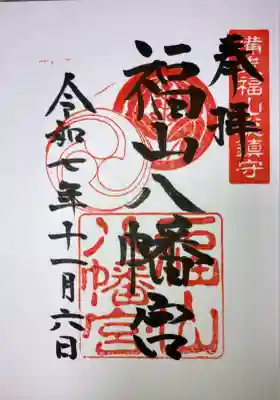 奉拝
備後福山総鎮守
福山八幡宮
令和七年十一月六日
福山
八幡宮